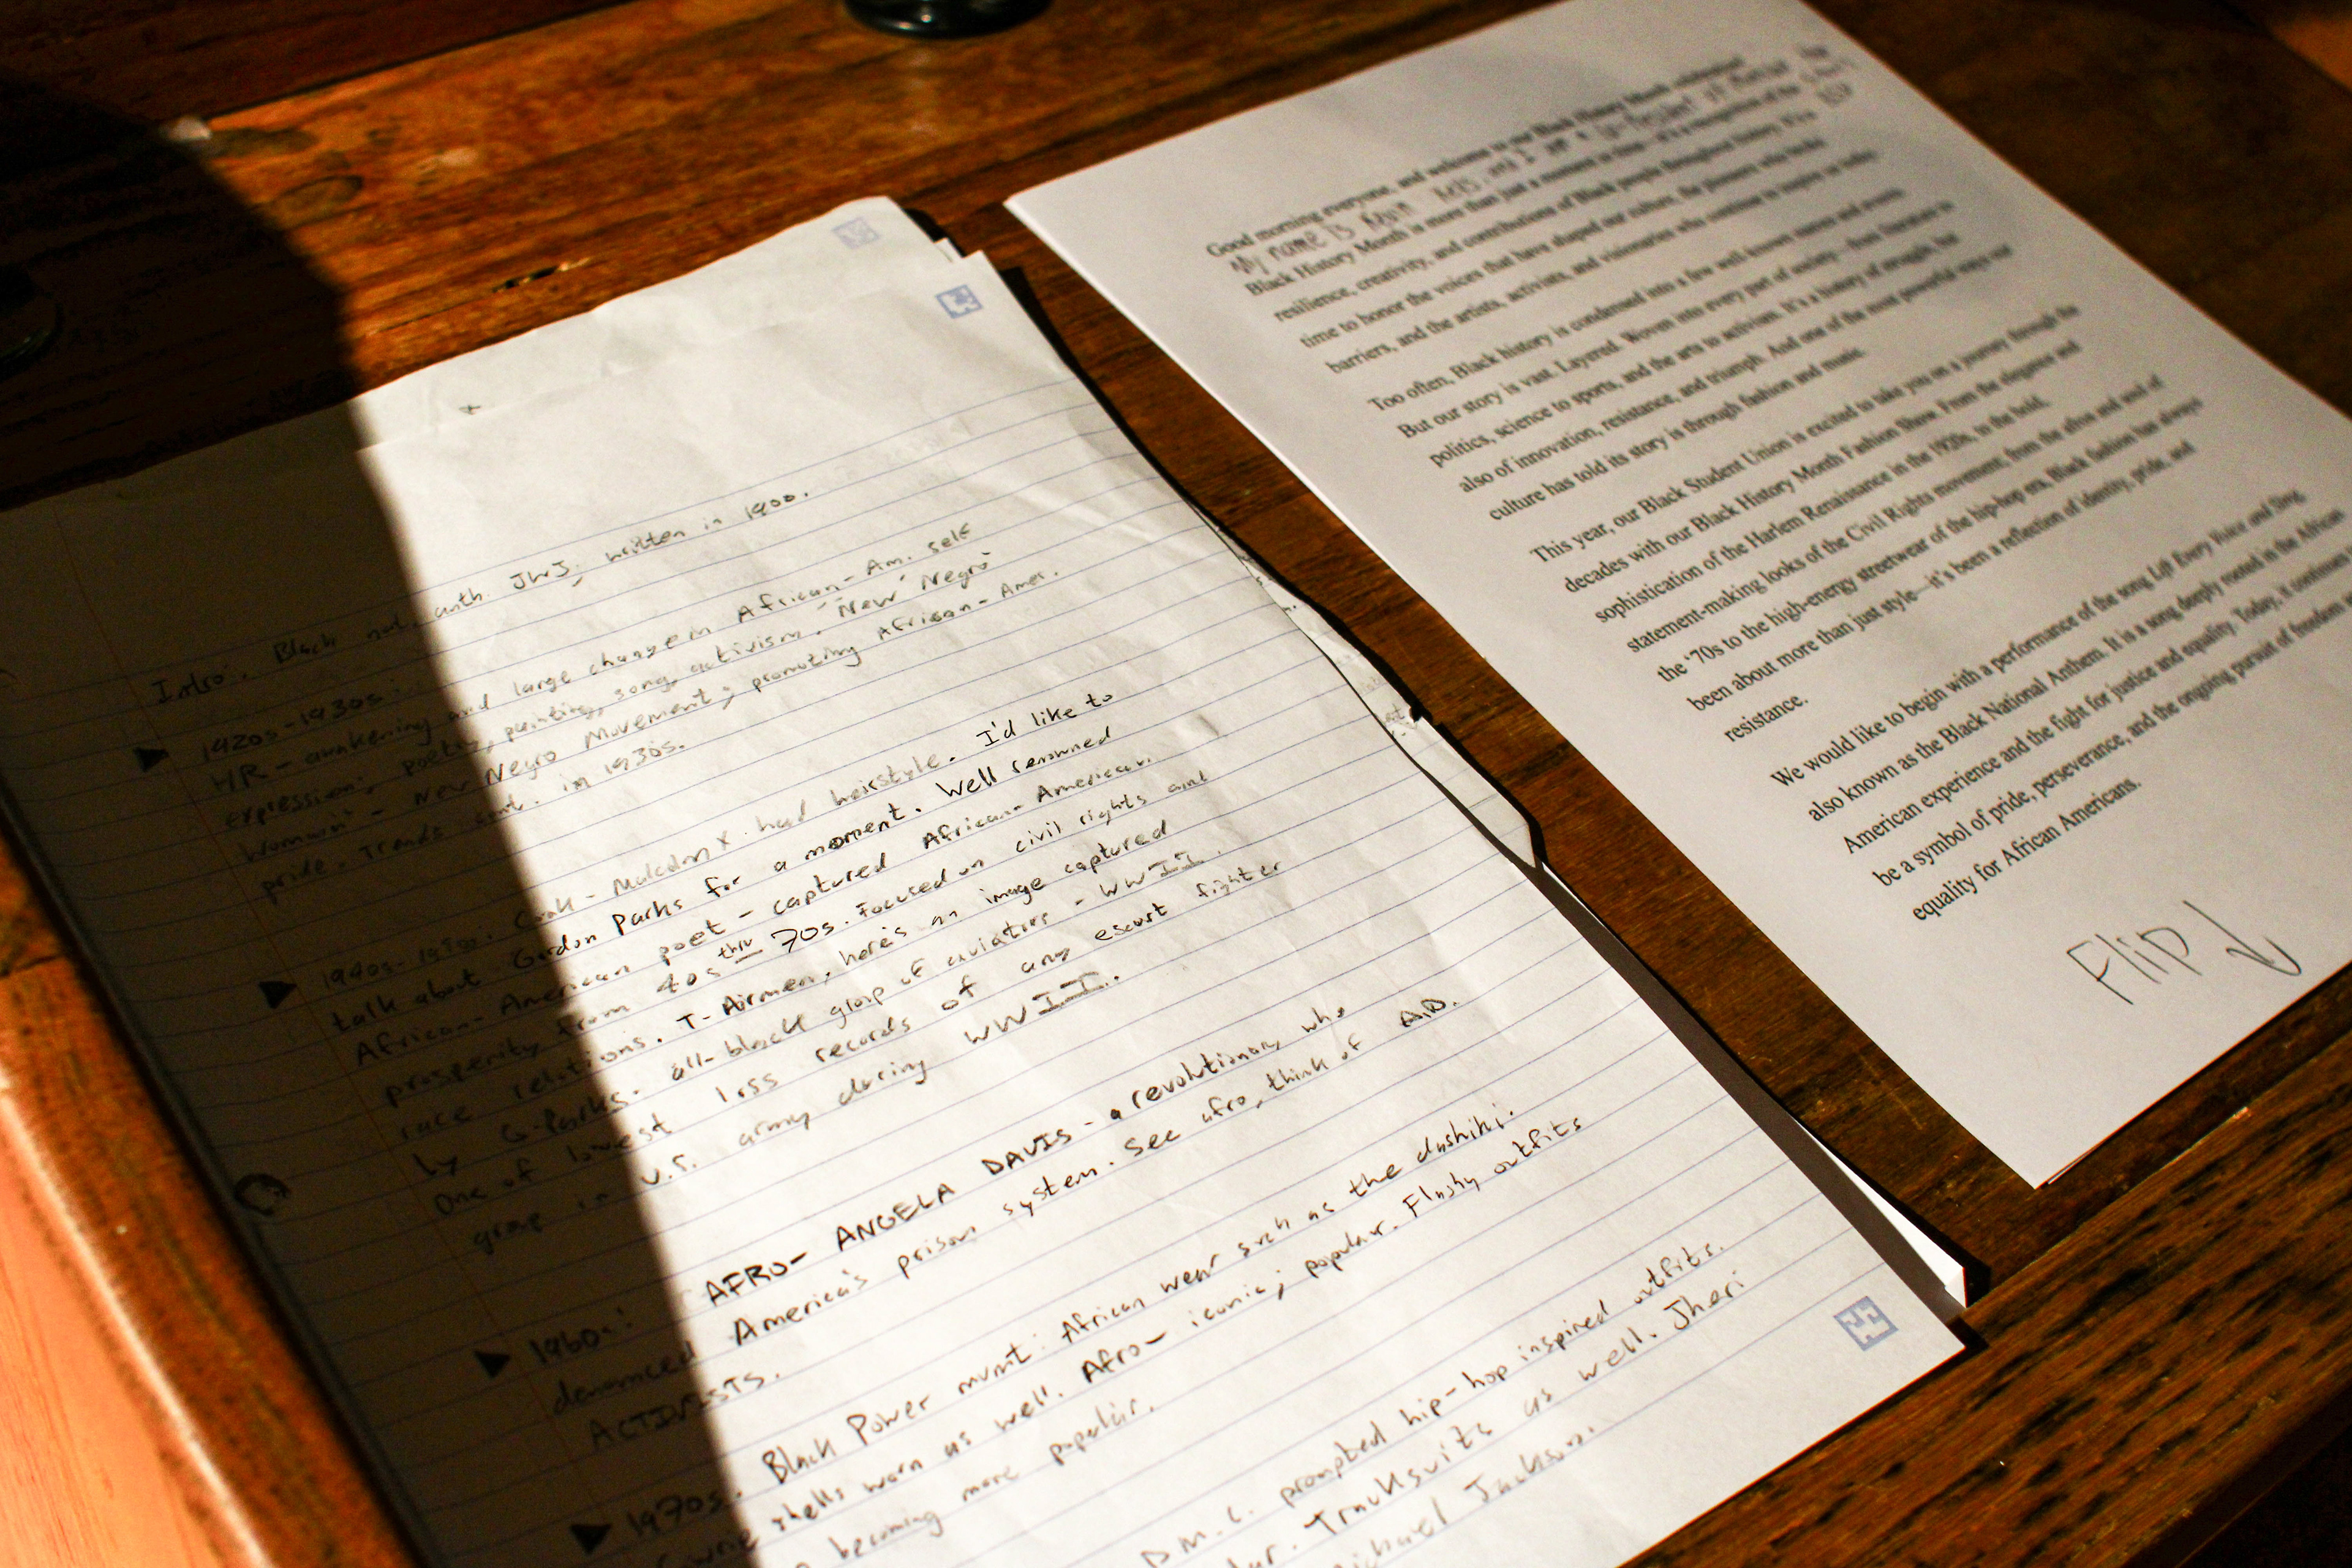 Intro: Black nat. anth. JWJ, written in 1900.
1920s-1930s:
HR - awakening and large change in African-Am. self
expression; poetry, painting, song, activism. "New Negro
Woman" - New Negro Movement; promoting African-Amer.
pride. Trends cont. in 1930s.
1940s-1950s: Conk - Malcolm X had hairstyle. I'd like to
talk about Gordon Parks for a moment. Well renowned
African-American poet - captured African-American
prosperity from 40s thru 70s. Focused on civil rights and
race relations. T-Airmen, here's an image captured
by G-Parks. all-black group of aviators - WWII.
One of lowest loss records of any escort fighter
group in U.S. army during WWII.
1960s: AFRO- ANGELA DAVIS - a revolutionary who
denounced America's prison system. See afro, think of AD.
ACTIVISTS.
1970s. Black Power mvmt: African wear such as the dashiki.
Cowrie shells worn as well. Afro- iconic; popular. Flashy outfits
becoming more popular.
D.M.C. prompted hip-hop inspired outfits.
Tracksuits as well. Jheri
Michael Jackson.
Good morning everyone, and welcome to our Black History Month celebration!
My name is and I am a
Black History Month is more than just a moment in time—it's a recognition of the
resilience, creativity, and contributions of Black people throughout history. It's a
time to honor the voices that have shaped our culture, the pioneers who broke
barriers, and the artists, activists, and visionaries who continue to inspire us today.
Too often, Black history is condensed into a few well-known names and events.
But our story is vast. Layered. Woven into every part of society—from literature to
politics, science to sports, and the arts to activism. It's a history of struggle, but
also of innovation, resistance, and triumph. And one of the most powerful ways our
culture has told its story is through fashion and music.
This year, our Black Student Union is excited to take you on a journey through the
decades with our Black History Month Fashion Show. From the elegance and
sophistication of the Harlem Renaissance in the 1920s, to the bold,
statement-making looks of the Civil Rights movement, from the afros and soul of
the '70s to the high-energy streetwear of the hip-hop era. Black fashion has always
been about more than just style—it's been a reflection of identity, pride, and
resistance.
We would like to begin with a performance of the song Lift Every Voice and Sing,
also known as the Black National Anthem. It is a song deeply rooted in the African
American experience and the fight for justice and equality. Today, it continues
be a symbol of pride, perseverance, and the ongoing pursuit of freedom
equality for African Americans.
Flip